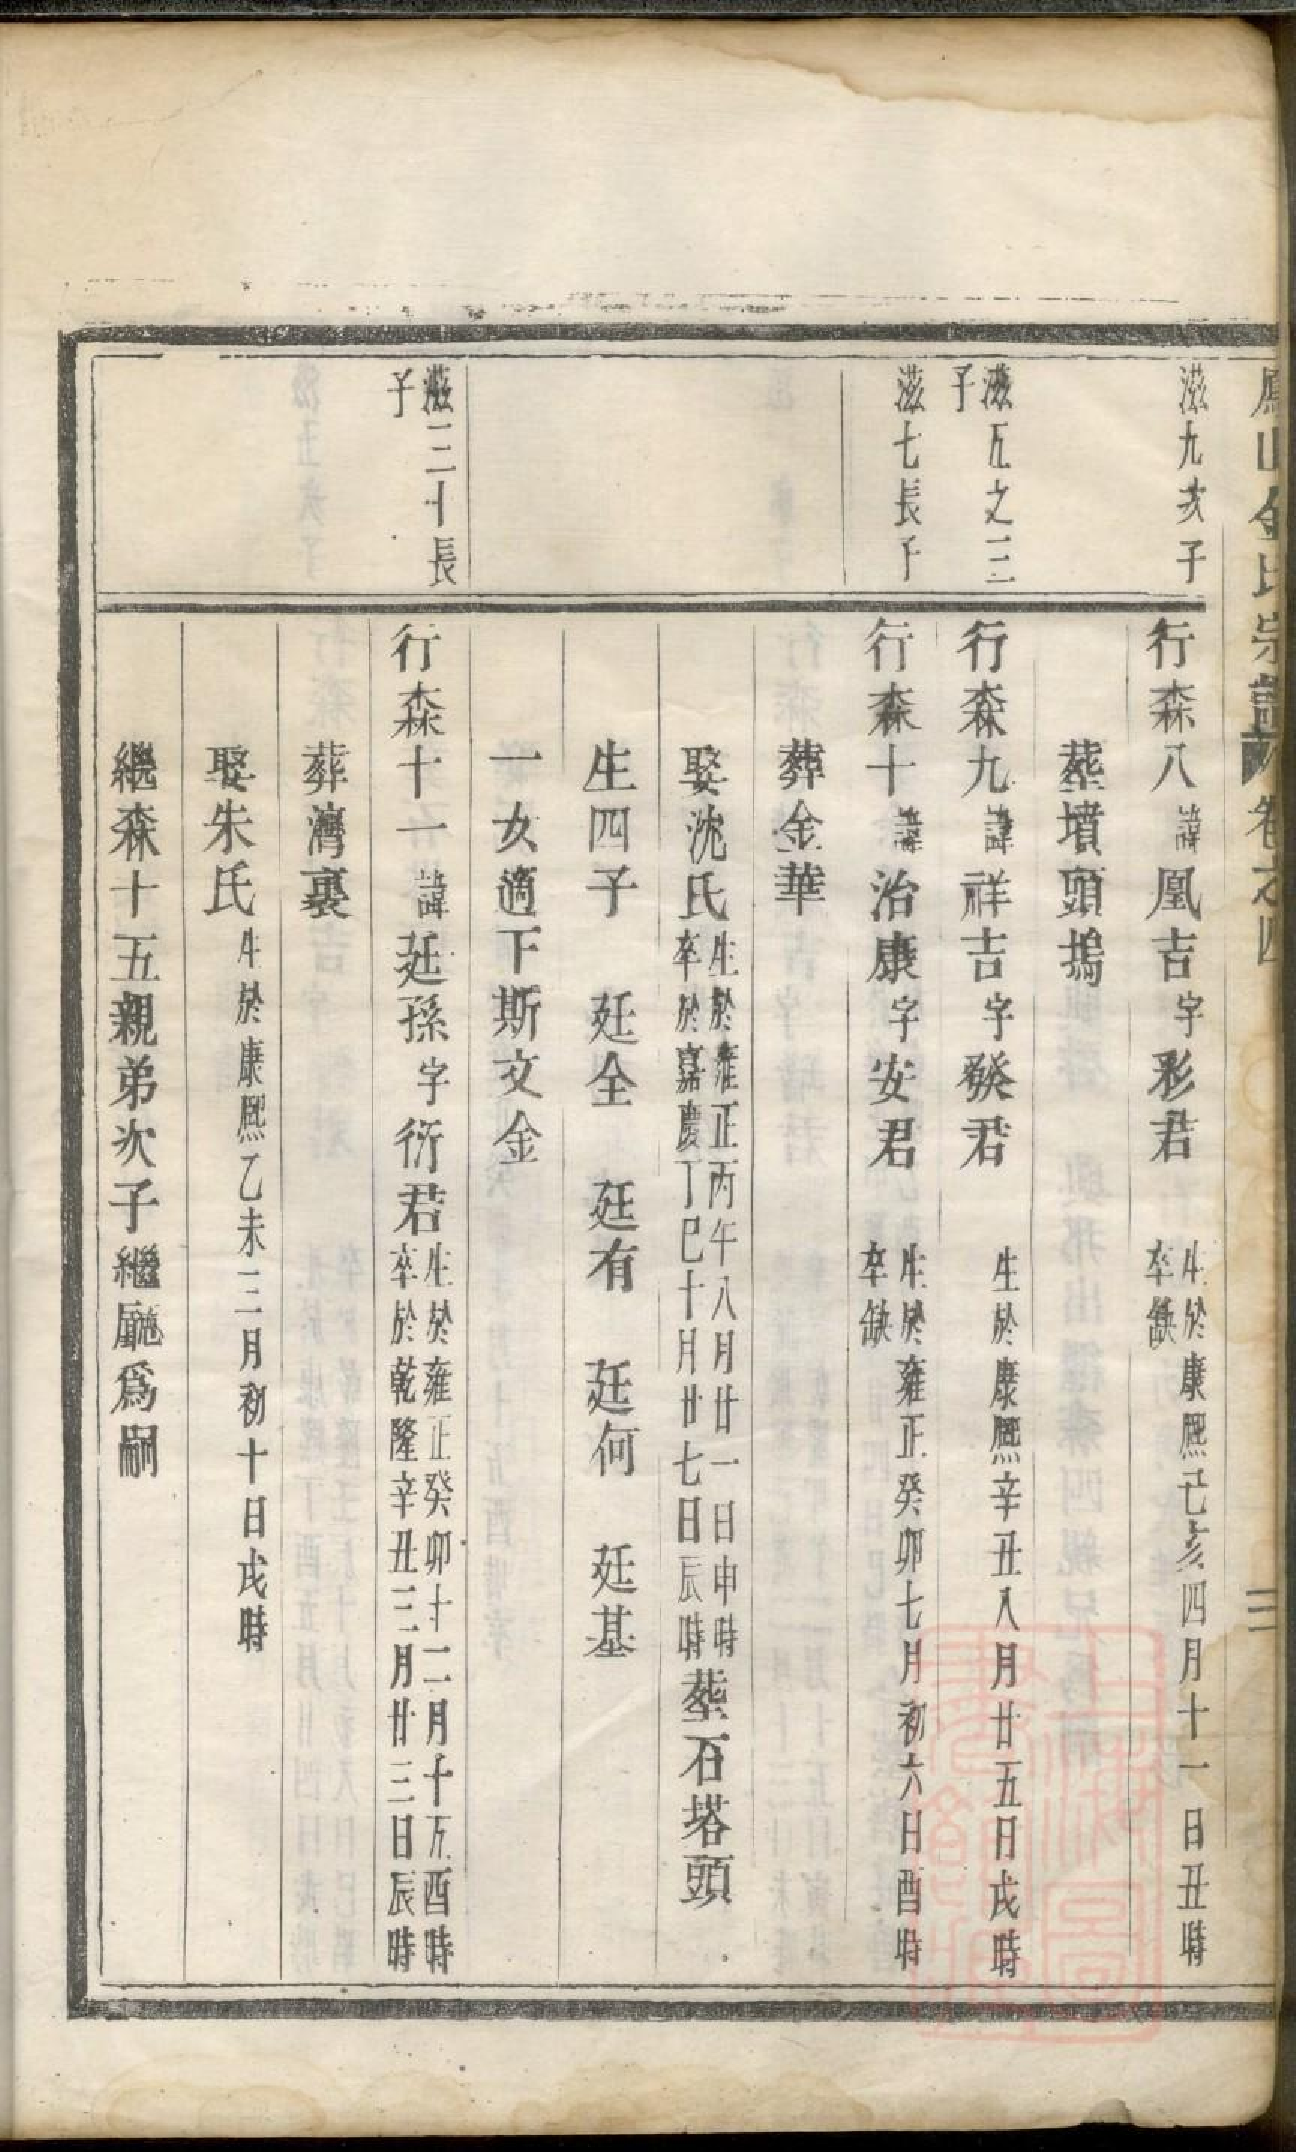 鳳山金氏宗譜 卷之四 三
滋九次子
行森八 諱 凰吉 字 彩君 生於康熙己亥四月十一日丑時
卒缺
葬墳頭塢
滋五之三
子
行森九 諱 祥吉 字 發君 生於康熙辛丑八月廿五日戌時
滋七長子
行森十 諱 治康 字 安君 生於雍正癸卯七月初六日酉時
卒缺
葬金華
娶沈氏 生於雍正丙午八月廿一日申時
卒於嘉慶丁巳十月廿七日辰時 葬石塔頭
生四子 廷全 廷有 廷何 廷基
一女適下斯文金
滋三十長
子
行森十一 諱 廷孫 字 衍君 生於雍正癸卯十二月十五酉時
卒於乾隆辛丑三月廿三日辰時
葬灣裏
娶朱氏 生於康熙乙未三月初十日戌時
繼森十五親弟次子繼廳爲嗣